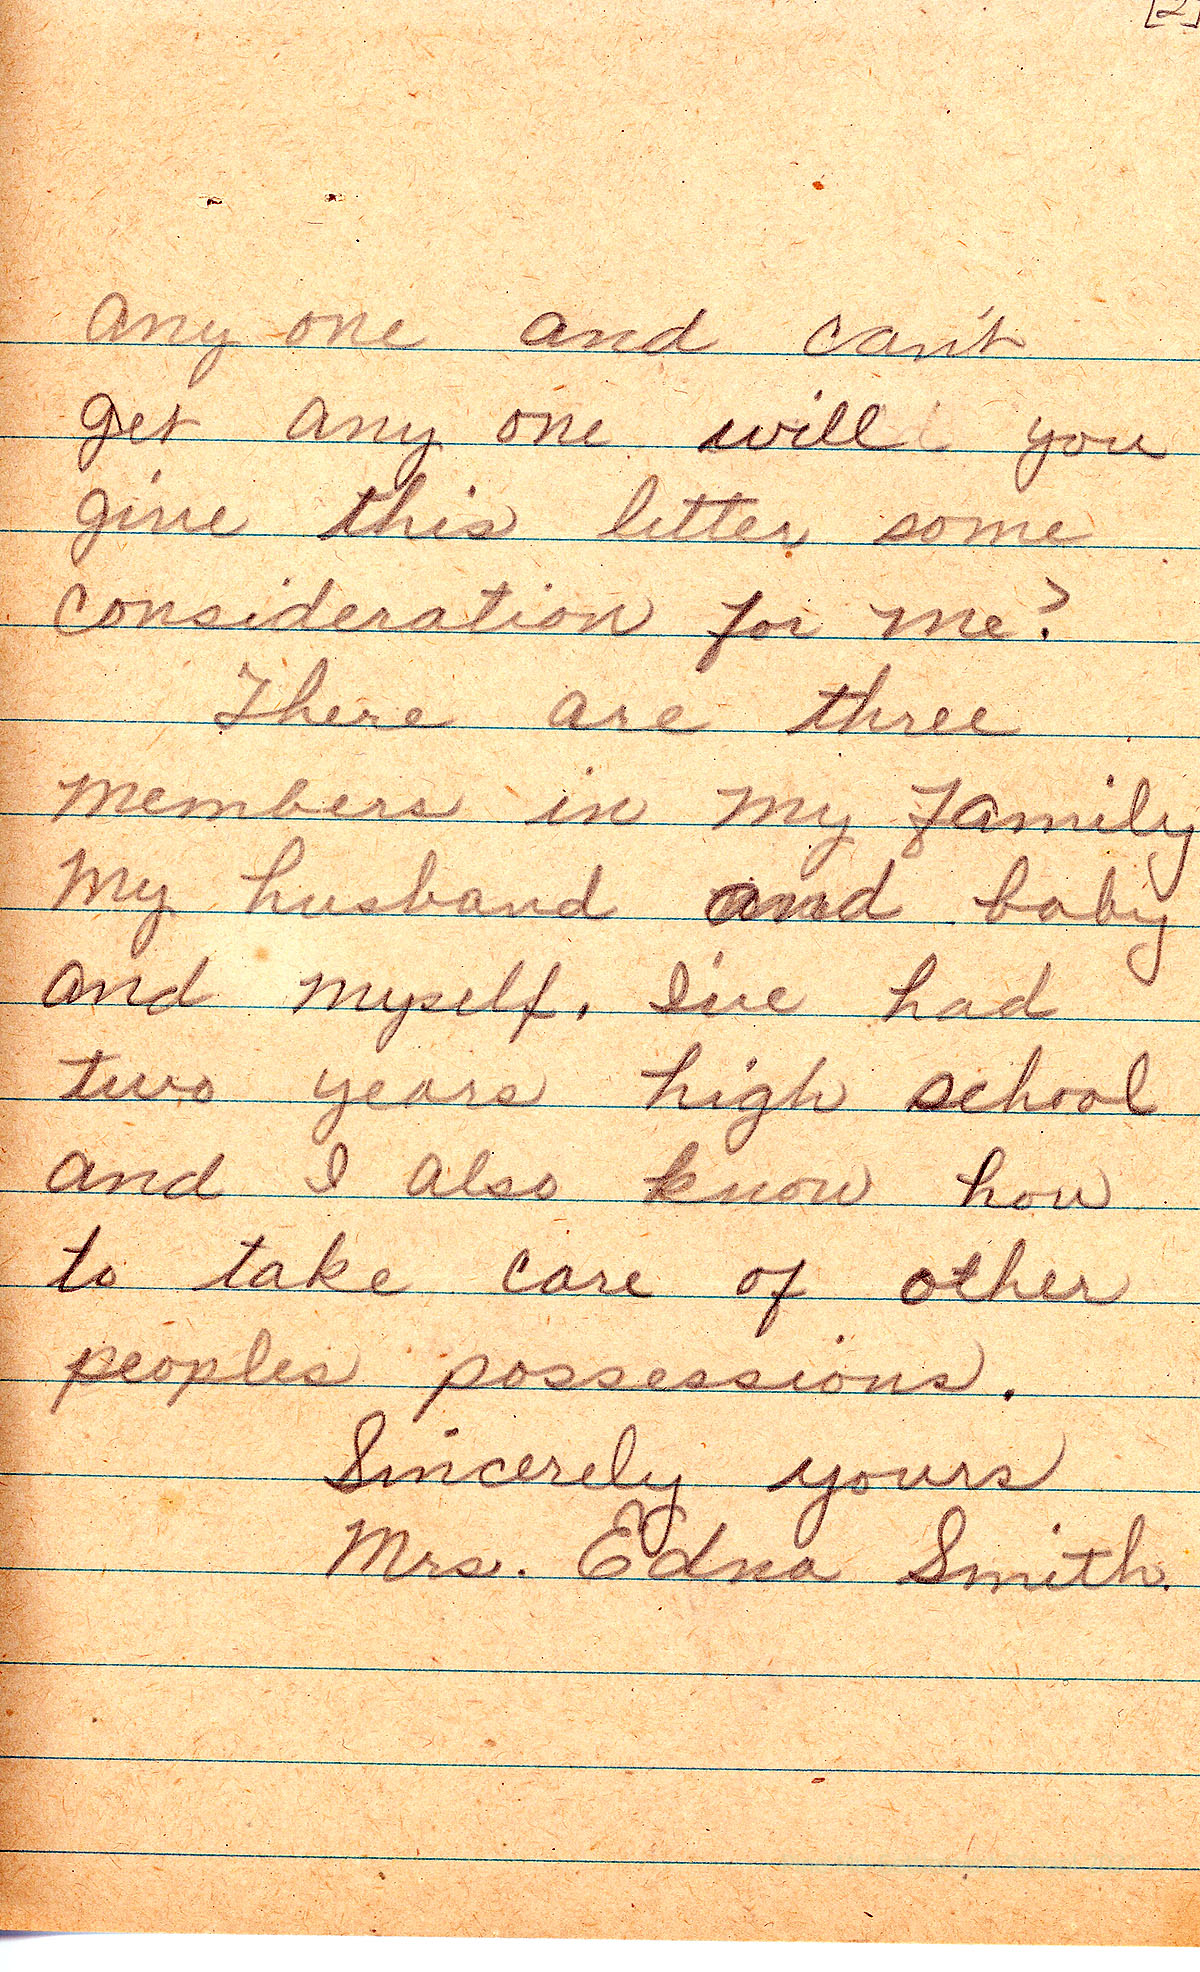 [2]
any one and can't
get any one will you
give this letter some
consideration for me?
There are three
members in my family
My husband and baby
and myself. I've had
two years high school
and I also know how
to take care of other
peoples possessions.
Sincerely yours
Mrs. Edna Smith.